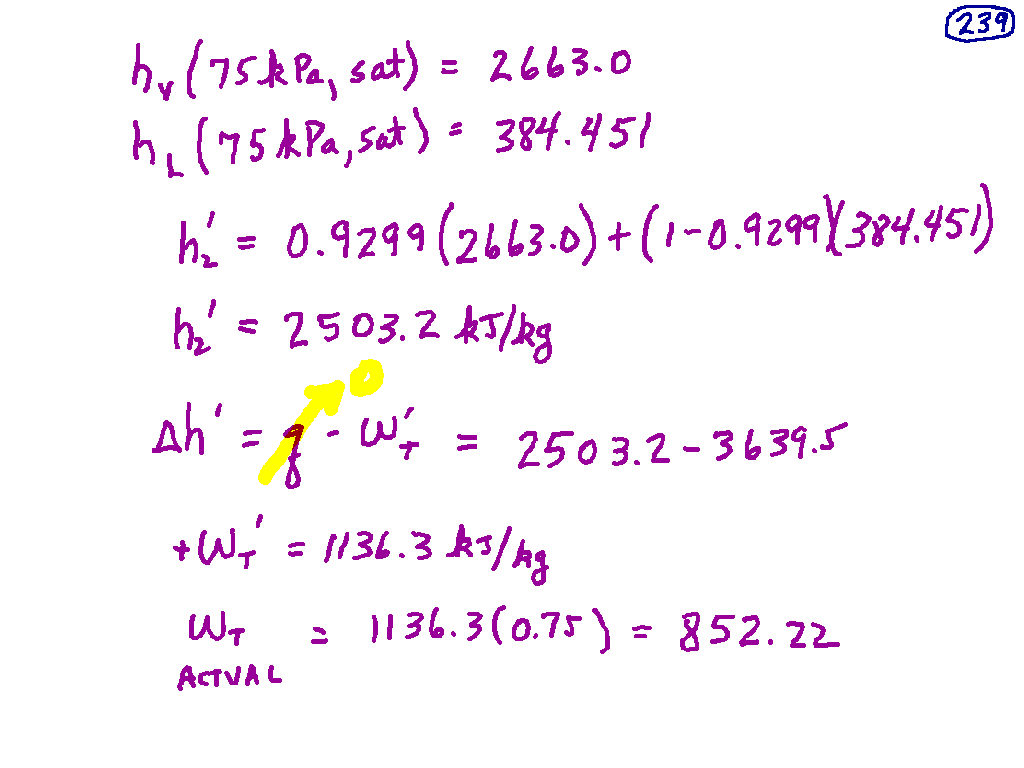 239
hᵥ(75kPa, sat) = 2663.0
h_L(75kPa, sat) = 384.451
h₂' = 0.9299(2663.0)+(1-0.9299)(384.451)
h₂' = 2503.2 kJ/kg
0
Δh' = q - W_T' = 2503.2-3639.5
+W_T' = 1136.3 kJ/kg
W_T = 1136.3(0.75) = 852.22
ACTUAL